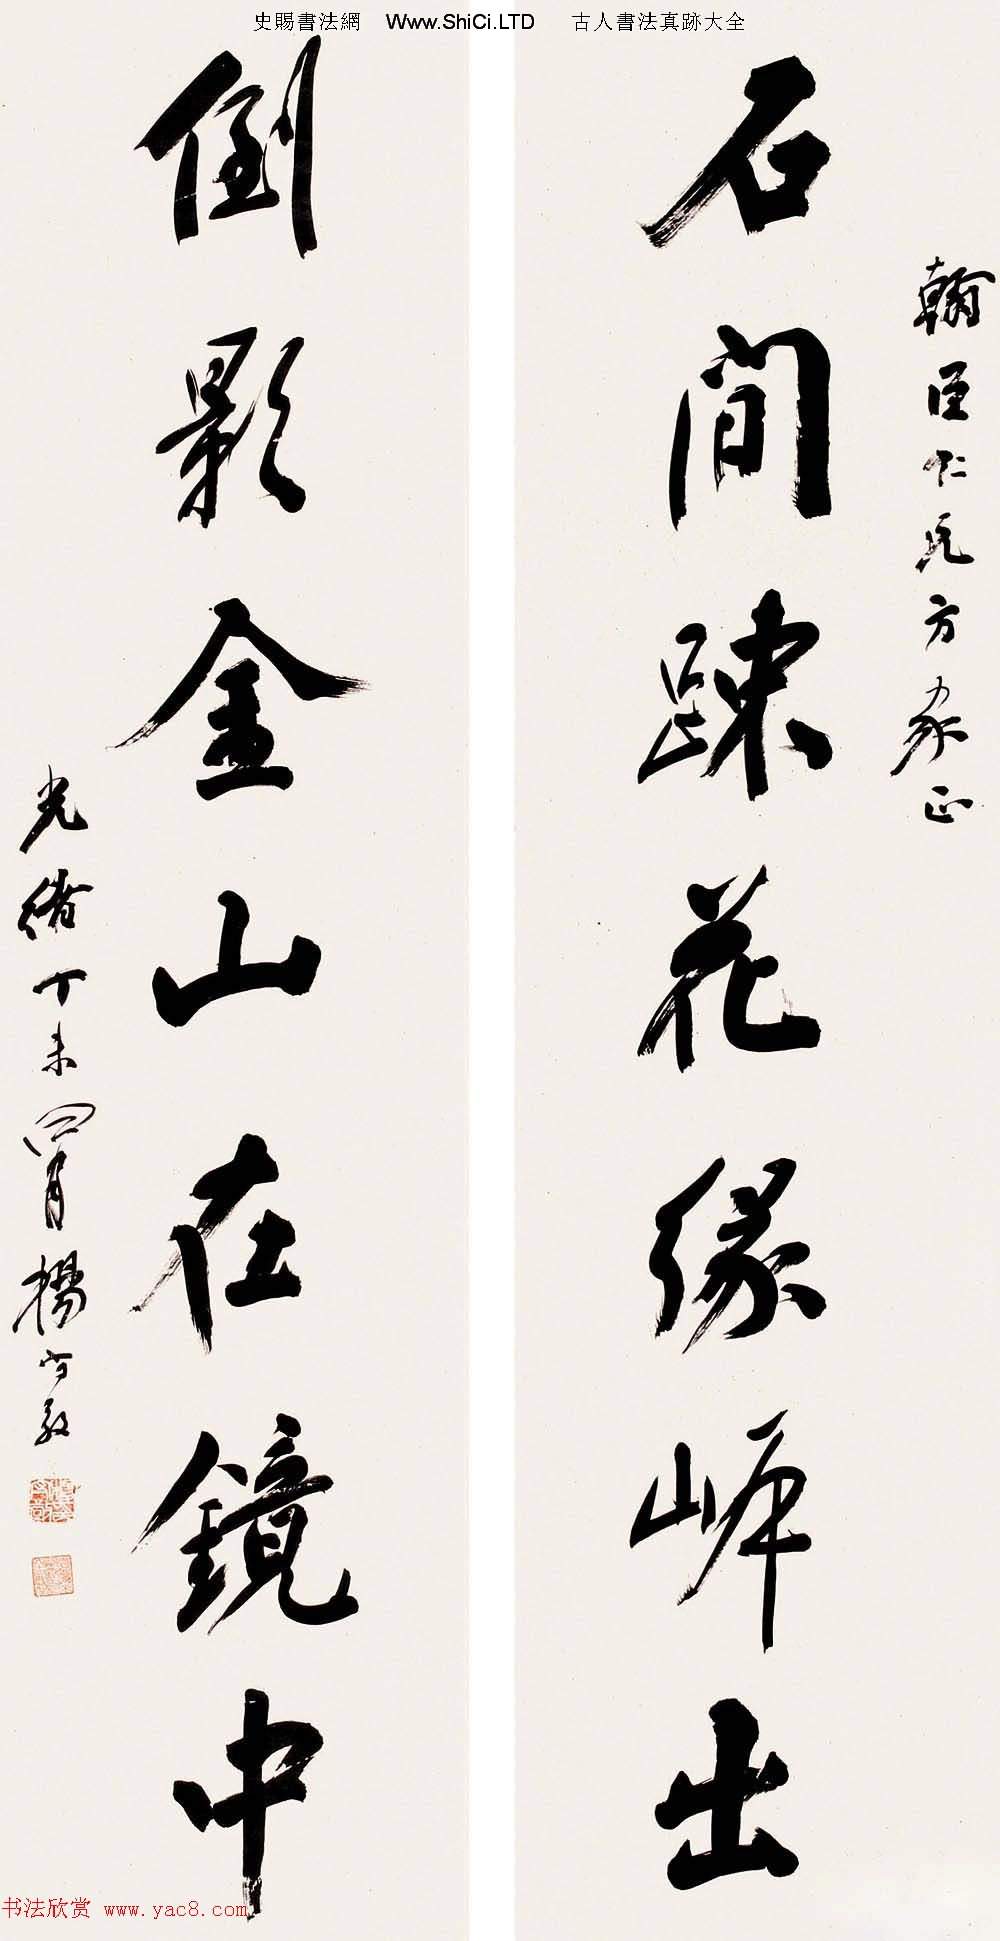 史賜書法網 Www.ShiCi.LTD 古人書法真跡大全
翰臣仁兄方家正
石間踈花緣崥出
倒影金山在鏡中
光緒丁未四月楊守敬
书法欣赏 www.yac8.com